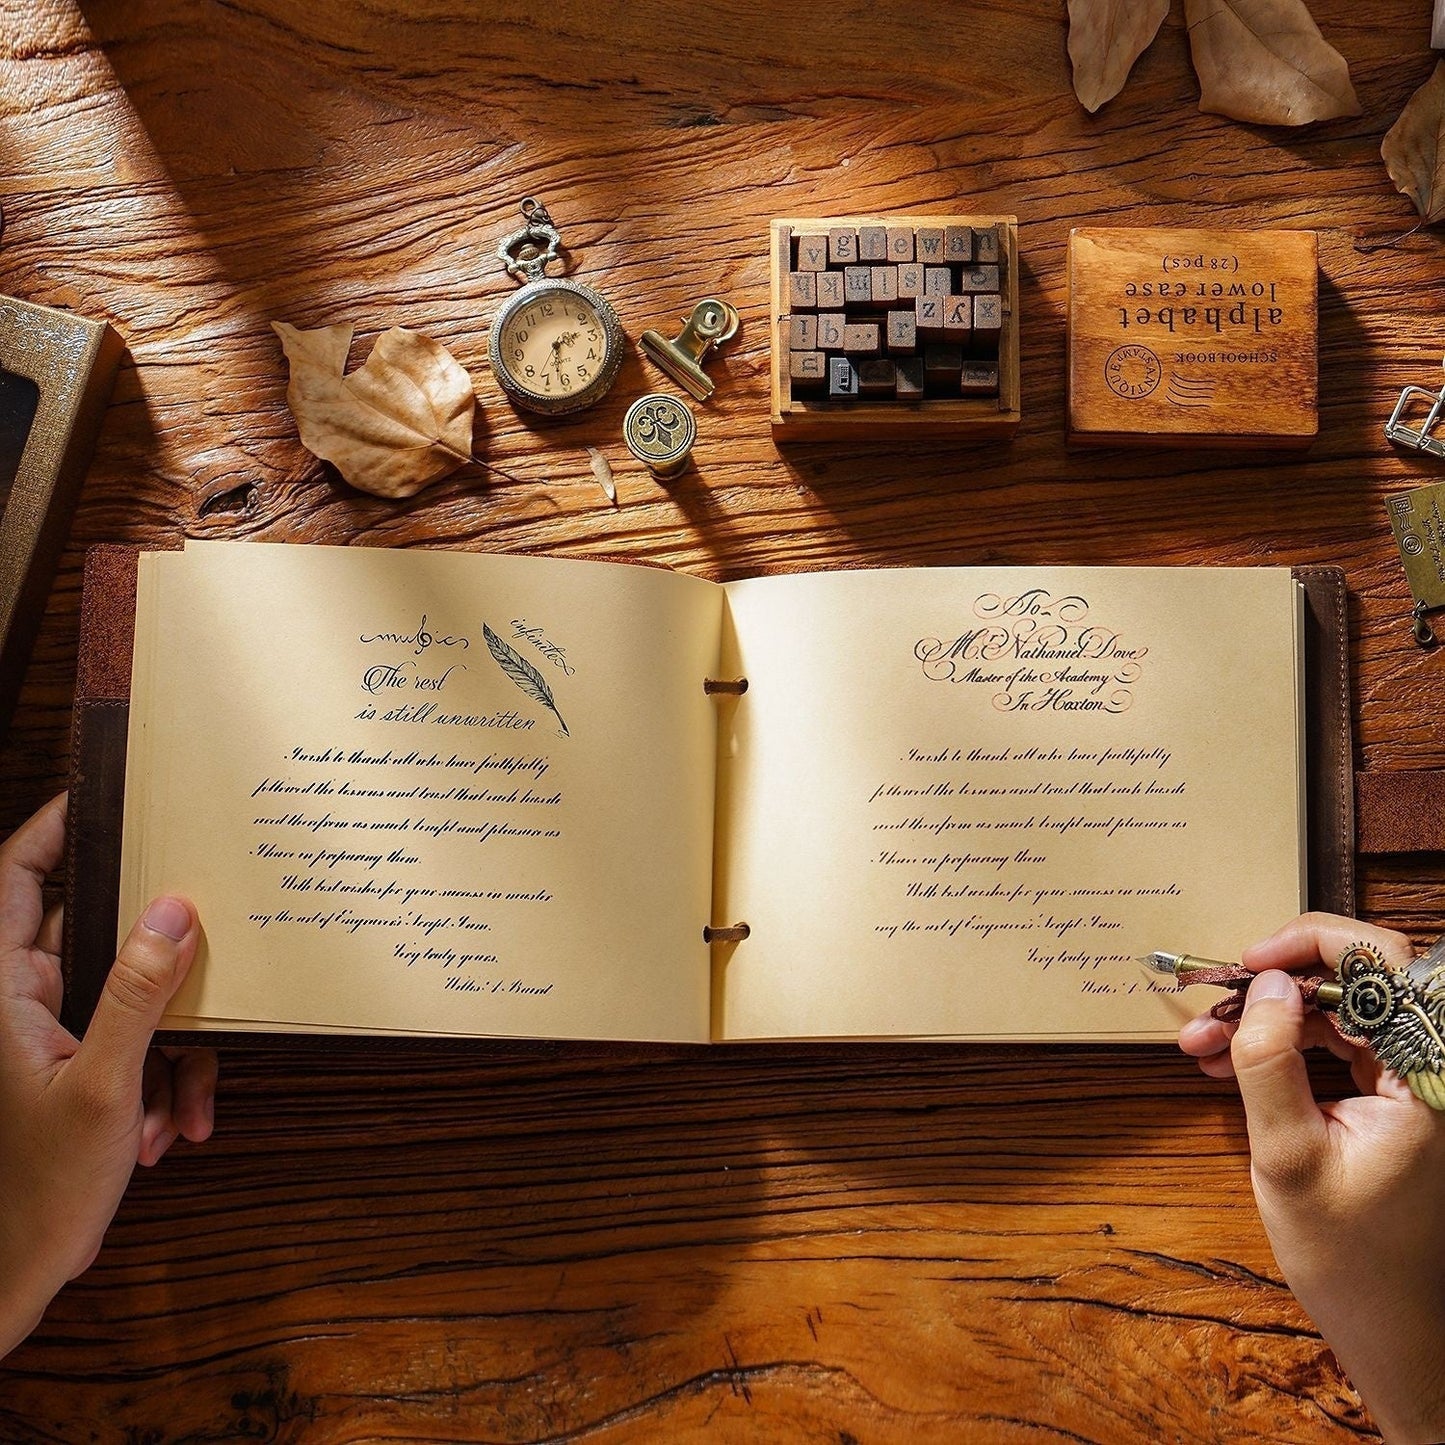 12 1 2 3 4 5 6 7 8 9 10 11
QUARTZ
v g f e w a n
q k m l s j o
z y x
! b . . r
u
alphabet
lower case
(28 pcs)
SCHOOLBOOK
ANTIQUE STAMP
music
infinite
The rest
is still unwritten
I wish to thank all who have faithfully
followed the lessons and trust that each has de
rived therefrom as much benefit and pleasure as
I have in preparing them.
With best wishes for your success in master
ing the art of Engravers' Script. I am.
Very truly yours.
Baird
To
Mr. Nathaniel Dove
Master of the Academy
In Hoxton
I wish to thank all who have faithfully
followed the lessons and trust that each has de
rived therefrom as much benefit and pleasure as
I have in preparing them
With best wishes for your success in master
ing the art of Engravers' Script. I am.
Very truly yours
Baird